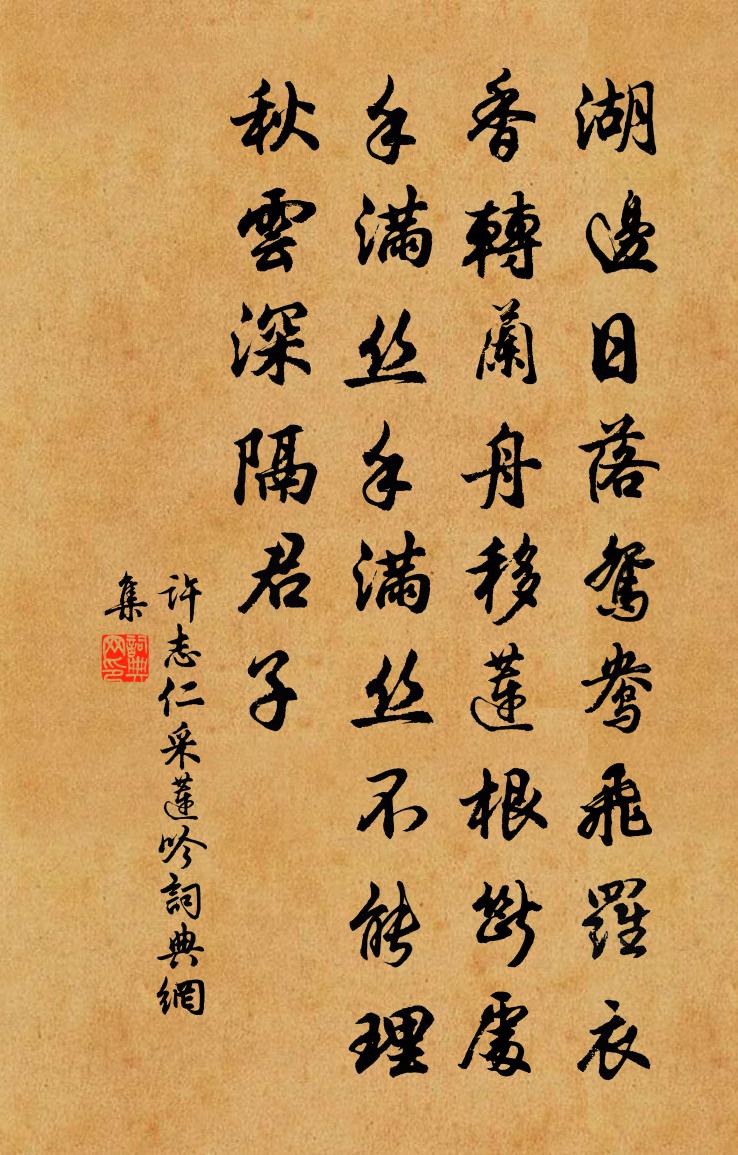 湖邊日落鴛鴦飛羅衣
香轉蘭舟移蓮根斷處
手滿丝手滿丝不能理
秋雲深隔君子
許志仁采蓮吟詞典網
集
詞典
网印